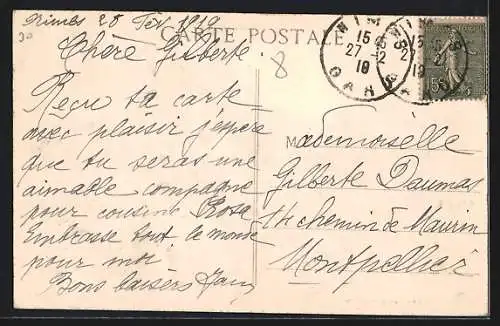 Nimes 28 Fév 1919
CARTE POSTALE
NIMES
15
27 -2
19
GARD
Chère Gilberte.
Reçu ta carte
avec plaisir j'espère
que tu seras une
aimable compagne
pour cousine Rose
Embrasse tout le monde
pour moi.
Bons baisers
Mademoiselle
Gilberte Daumas
14 chemin de Maurin
Montpellier
8
30